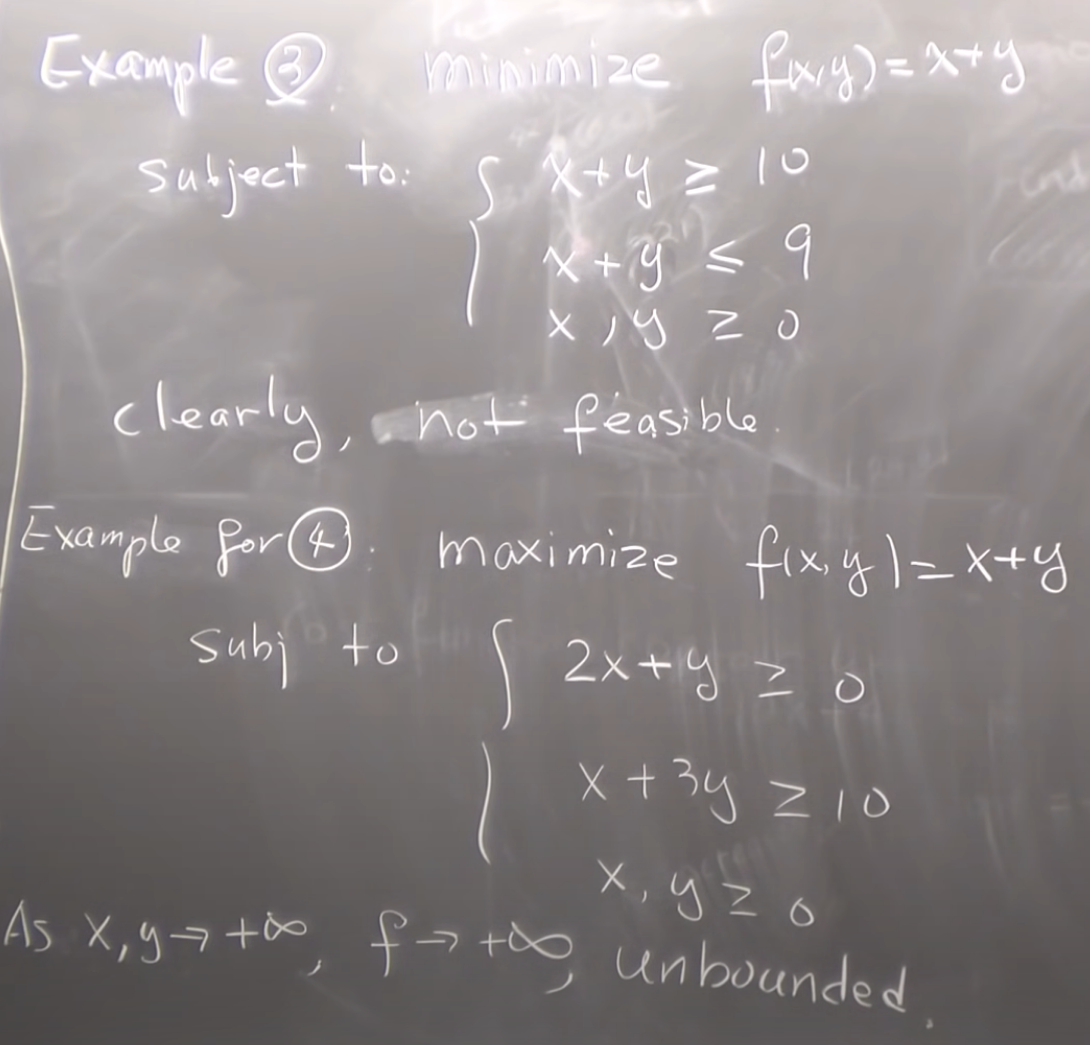 Example ③. minimize f(x,y) = x+y
subject to: { x+y ≥ 10
x+y ≤ 9
x, y ≥ 0
clearly, not feasible.
Example for ④. maximize f(x,y) = x+y
subj to { 2x+y ≥ 0
x+3y ≥ 10
x, y ≥ 0
As x,y → +∞, f → +∞, unbounded.